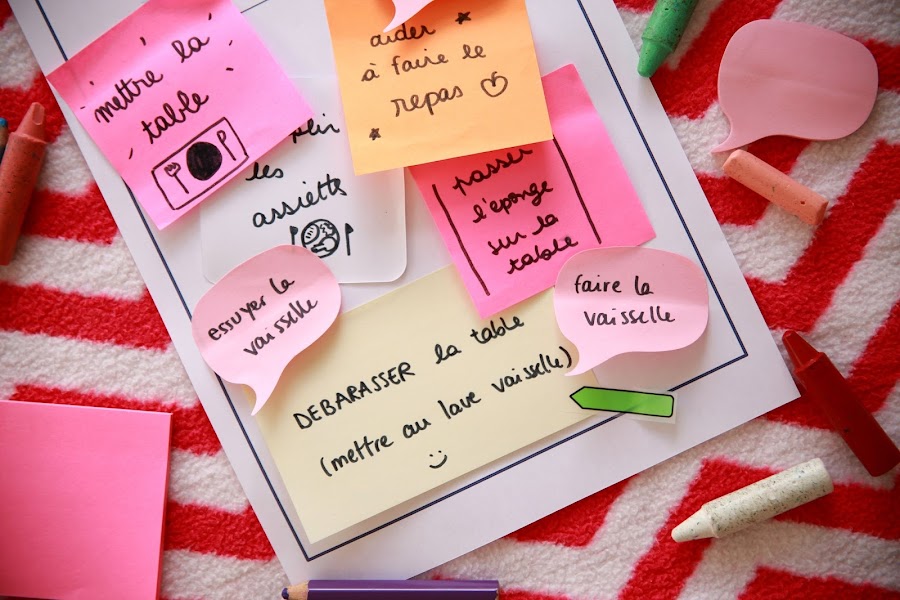 mettre la
table
aider
à faire le
repas
les
assiettes
passer
l'éponge
sur la
table
essuyer la
vaisselle
faire la
vaisselle
DEBARASSER la table
(mettre au lave vaisselle)